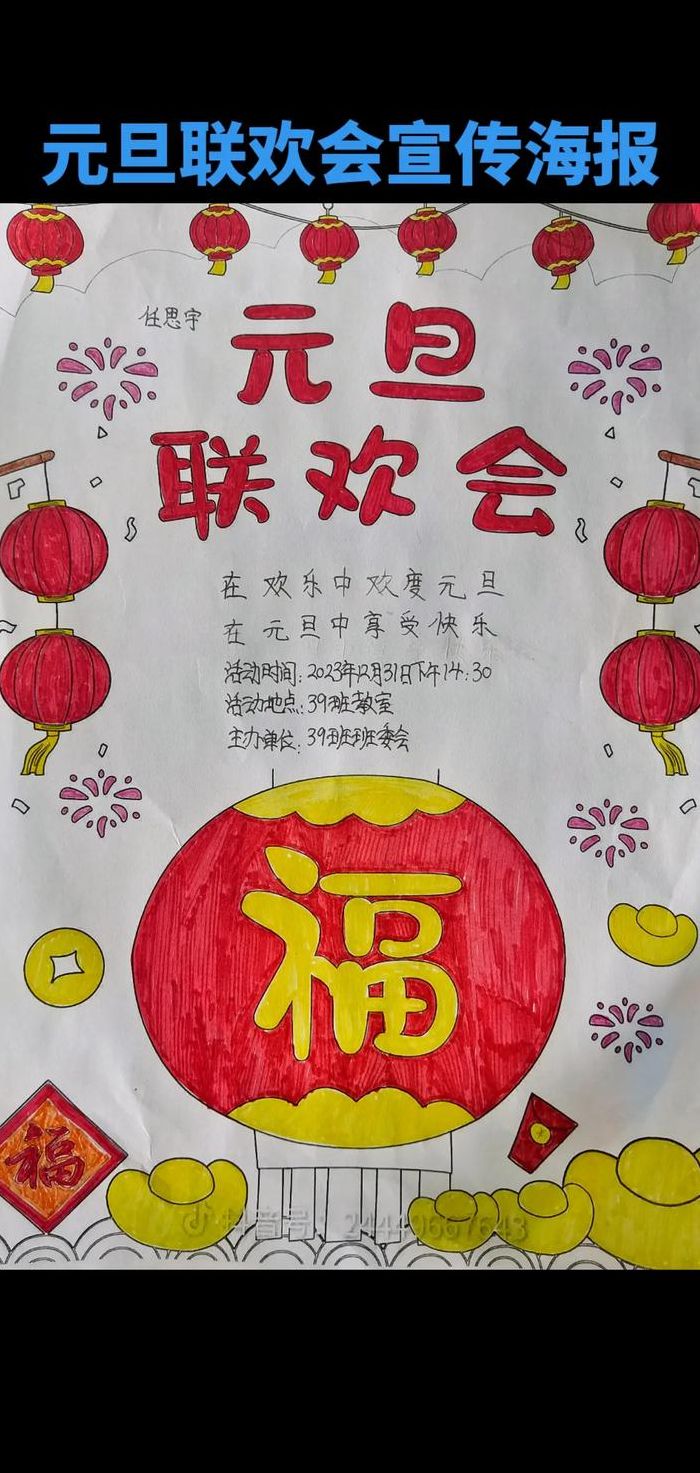 元旦联欢会宣传海报
任思宇
元旦
联欢会
在欢乐中欢度元旦
在元旦中享受快乐
活动时间:2023年12月31日下午14:30
活动地点:39班教室
主办单位:39班班委会
福
福
抖音号:24449667643